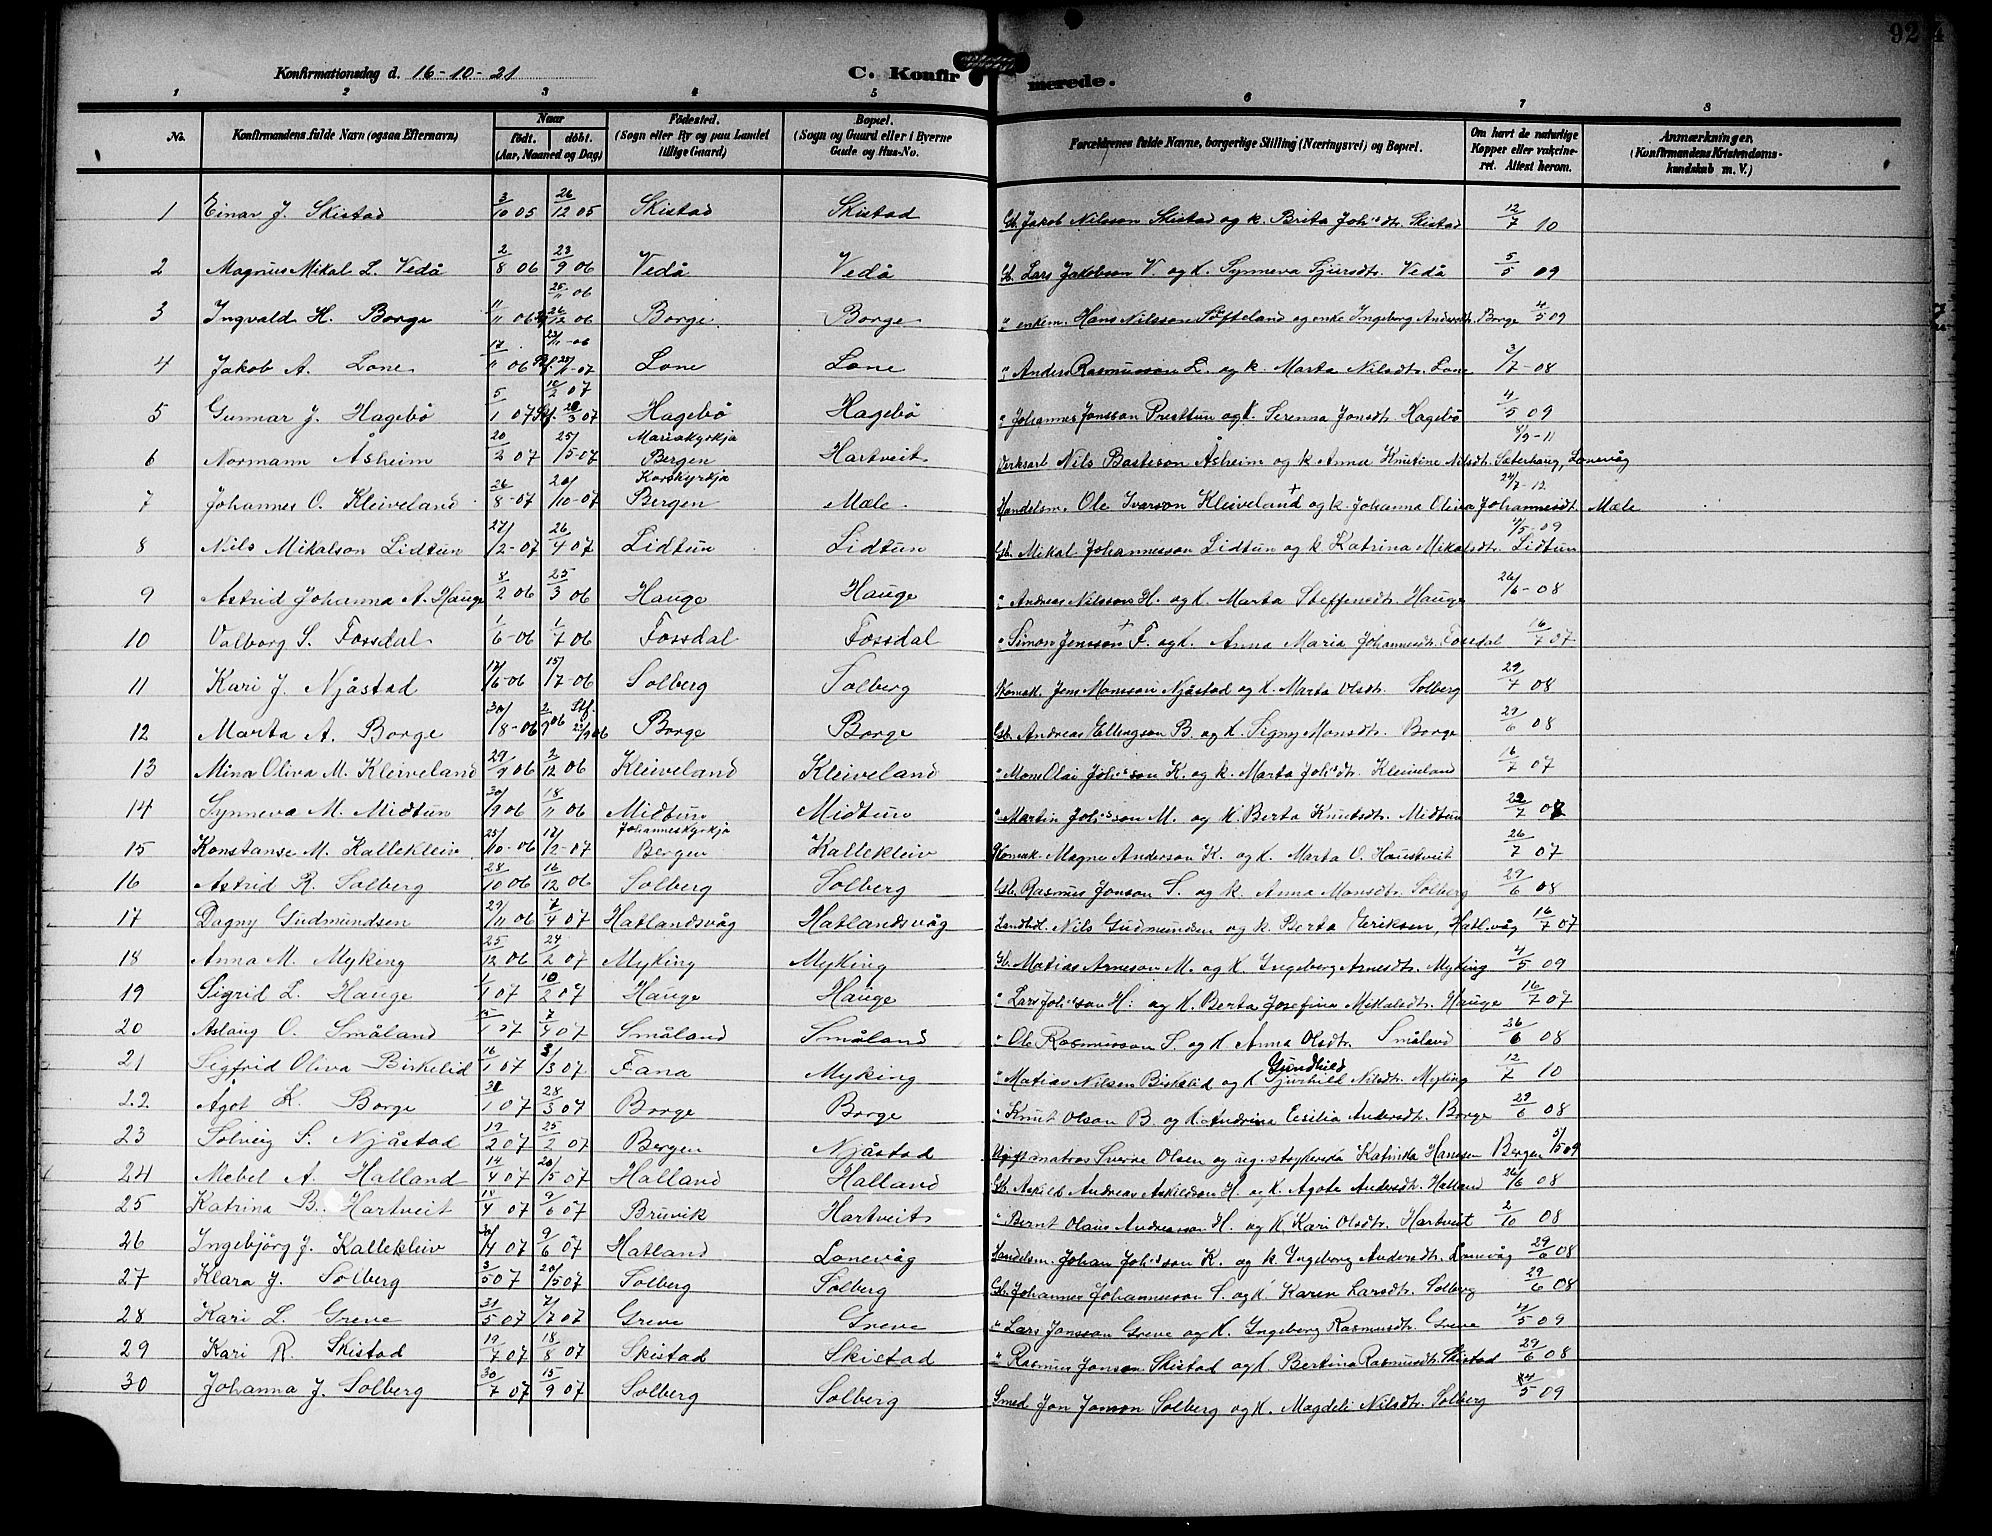 92
Konfirmationsdag d. 16-10-21 C. Konfirmerede.
1 2 3 4 5 6 7 8
No. Konfirmandens fulde Navn (ogsaa Efternavn) Naar født. døbt. (Aar, Maaned og Dag) Fødested. (Sogn eller By og paa Landet tillige Gaard) Bopæl. (Sogn og Gaard eller i Byerne Gade og Hus-No. Forældrenes fulde Navne, borgerlige Stilling (Næringsvei) og Bopæl. Om havt de naturlige Kopper eller vakcineret. Attest herom. Anmærkninger. (Konfirmandens Kristendomskundskab m. V.)
1 Einar J. Skistad 3/10 05 26/12 05 Skistad Skistad Gb. Jakob Nilsson Skistad og k. Brita Joh's dtr. Skistad 12/7 10
2 Magnus Mikal L. Vedå 2/8 06 23/9 06 Vedå Vedå Gb. Lars Jakobson V. og K. Synneva Sjursdtr. Vedå 5/5 09
3 Ingvald H. Borge 11/11 06 25/11 06 26/12 06 Borge Borge " enkem. Hans Nilsson Søfteland og enke Ingeborg Andersdtr. Borge 4/5 09
4 Jakob A. Lone 17/11 06 Lone Lone " Anders Rasmusson L. og k. Marta Nilsdtr. Lone 3/7-08
5 Gunnar J. Hagebø 5/1 07 10/2 07 Stf. 28/3 07 Hagebø Hagebø " Johannes Jonsson Presttun og K. Serenna Jonsdtr. Hagebø 4/5 09
6 Normann Åsheim 20/2 07 25/5-07 Mariakyrkja Bergen Hartveit Verksarb. Nils Basteson Åsheim og k Anna Knutine Nilsdtr. Sæterhaug, Lonevåg 8/9-11
7 Johannes O. Kleiveland 26/8-07 20/10-07 Korskyrkja Bergen Mæle. Handelsm. Ole Ivarson Kleiveland + og k. Johanna Oliva Johannesdt. Mæle 24/7-12
8 Nils Mikalson Lidtun 27/2-07 26/4 07 Lidtun Lidtun Gb. Mikal Johannesson Lidtun og k Katrina Mikalsdtr. Lidtun 4/5-09
9 Astrid Johanna A. Hauge 8/2 06 25/3 06 Hauge Hauge " Andreas Nilsson H. og K. Marta Steffensdtr. Hauge 26/6-08
10 Valborg S. Fossdal 1/6-06 1/7 06 Fossdal Fossdal " Simon Jensson + F. og K. Anna Maria Johannesdtr. Fossdal 16/7 07
11 Kari J. Njåstad 12/6-06 15/7-06 Solberg Solberg Skomak. Jens Monsson Njåstad og K. Marta Olsdt. Solberg 29/7 08
12 Marta A. Borge 30/8-06 2/9 06 Stf. 23/9 06 Borge Borge Gb. Andreas Ellingson B. og K. Signy Monsdtr. Borge 29/6 08
13 Mina Oliva M. Kleiveland 29/9 06 2/12 06 Kleiveland Kleiveland " Mons Olai Joh's son K. og k. Marta Joh's dtr. Kleiveland 16/7 07
14 Synneva M. Midtun 30/9 06 18/11 06 Midtun Midtun " Martin Joh's son M. og K. Berta Knutsdtr. Midtun 22/7 08
15 Konstanse M. Kallekleiv 25/10-06 17/2-07 Johanneskyrkja Bergen Kallekleiv Skomak. Magne Anderson K. og K. Marta O. Haustveit 26/7 07
16 Astrid R. Solberg 28/10 06 16/12 06 Solberg Solberg Gb. Rasmus Jonson S. og k. Anna Monsdtr. Solberg 29/6 08
17 Dagny Gudmundsen 29/11 06 7/4 07 Hatlandsvåg Hatlandsvåg Landhdl. Nils Gudmundsen og k. Berta Eriksen, Hatl.våg 16/7 07
18 Anna M. Myking 25/12 06 24/2 07 Myking Myking Gb. Matias Arneson M. og K. Ingeborg Arnesdtr. Myking 4/5 09
19 Sigrid L. Hauge 1/1 07 10/2 07 Hauge Hauge " Lars Joh's son H. og K. Berta Josefina Mikalsdtr. Hauge 16/7 07
20 Aslaug O. Småland 15/1 07 7/4 07 Småland Småland " Ole Rasmusson S. og K Anna Olsdtr. Småland 26/6 08
21 Sigfrid Oliva Birkelid 16/1 07 3/3 07 Fana Myking " Matias Nilsen Birkelid og K Gundhild Nilsdtr. Myking 12/7 10
22 Ågot K. Borge 31/1 07 28/3 07 Borge Borge " Knut Olson B. og K. Andrina Cesilia Andersdtr. Borge 29/6 08
23 Solveig S. Njåstad 19/2 07 25/2 07 Bergen Njåstad Ugift matros Sverre Olsen og ug. Katrina Hansen Bergen 5/5 09
24 Mebel A. Halland 14/4 07 20/5 07 Halland Halland Gb. Askild Andreas Askildson H. og K. Agote Andersdtr. Halland 26/6 08
25 Katrina B. Hartveit 18/4 07 9/6 07 Bruvik Hartveit " Bernt Olaus Andreasson H. og K Kari Olsdtr. Hartveit 2/10 08
26 Ingebjørg J. Kallekleiv 30/4 07 9/6 07 Hatland Lonevåg Handelsm. Johan Joh's son K. og k. Ingeborg Andersdtr. Lonevåg 29/6 08
27 Klara J. Solberg 3/5 07 20/5 07 Solberg Solberg Gb. Johannes Johannesson S. og K. Karen Larsdtr. Solberg 29/6 08
28 Kari L. Greve 31/5 07 7/7 07 Greve Greve " Lars Jonsson Greve og K. Ingeborg Rasmusdtr. Greve 4/5 09
29 Kari R. Skistad 19/7 07 18/8 07 Skistad Skistad " Rasmus Jonson Skistad og K Bertina Rasmusdtr. Skistad 29/6 08
30 Johanna J. Solberg 30/7 07 15/9 07 Solberg Solberg Smed Jon Jonson Solberg og K. Magdeli Nilsdtr. Solberg 4/5 09